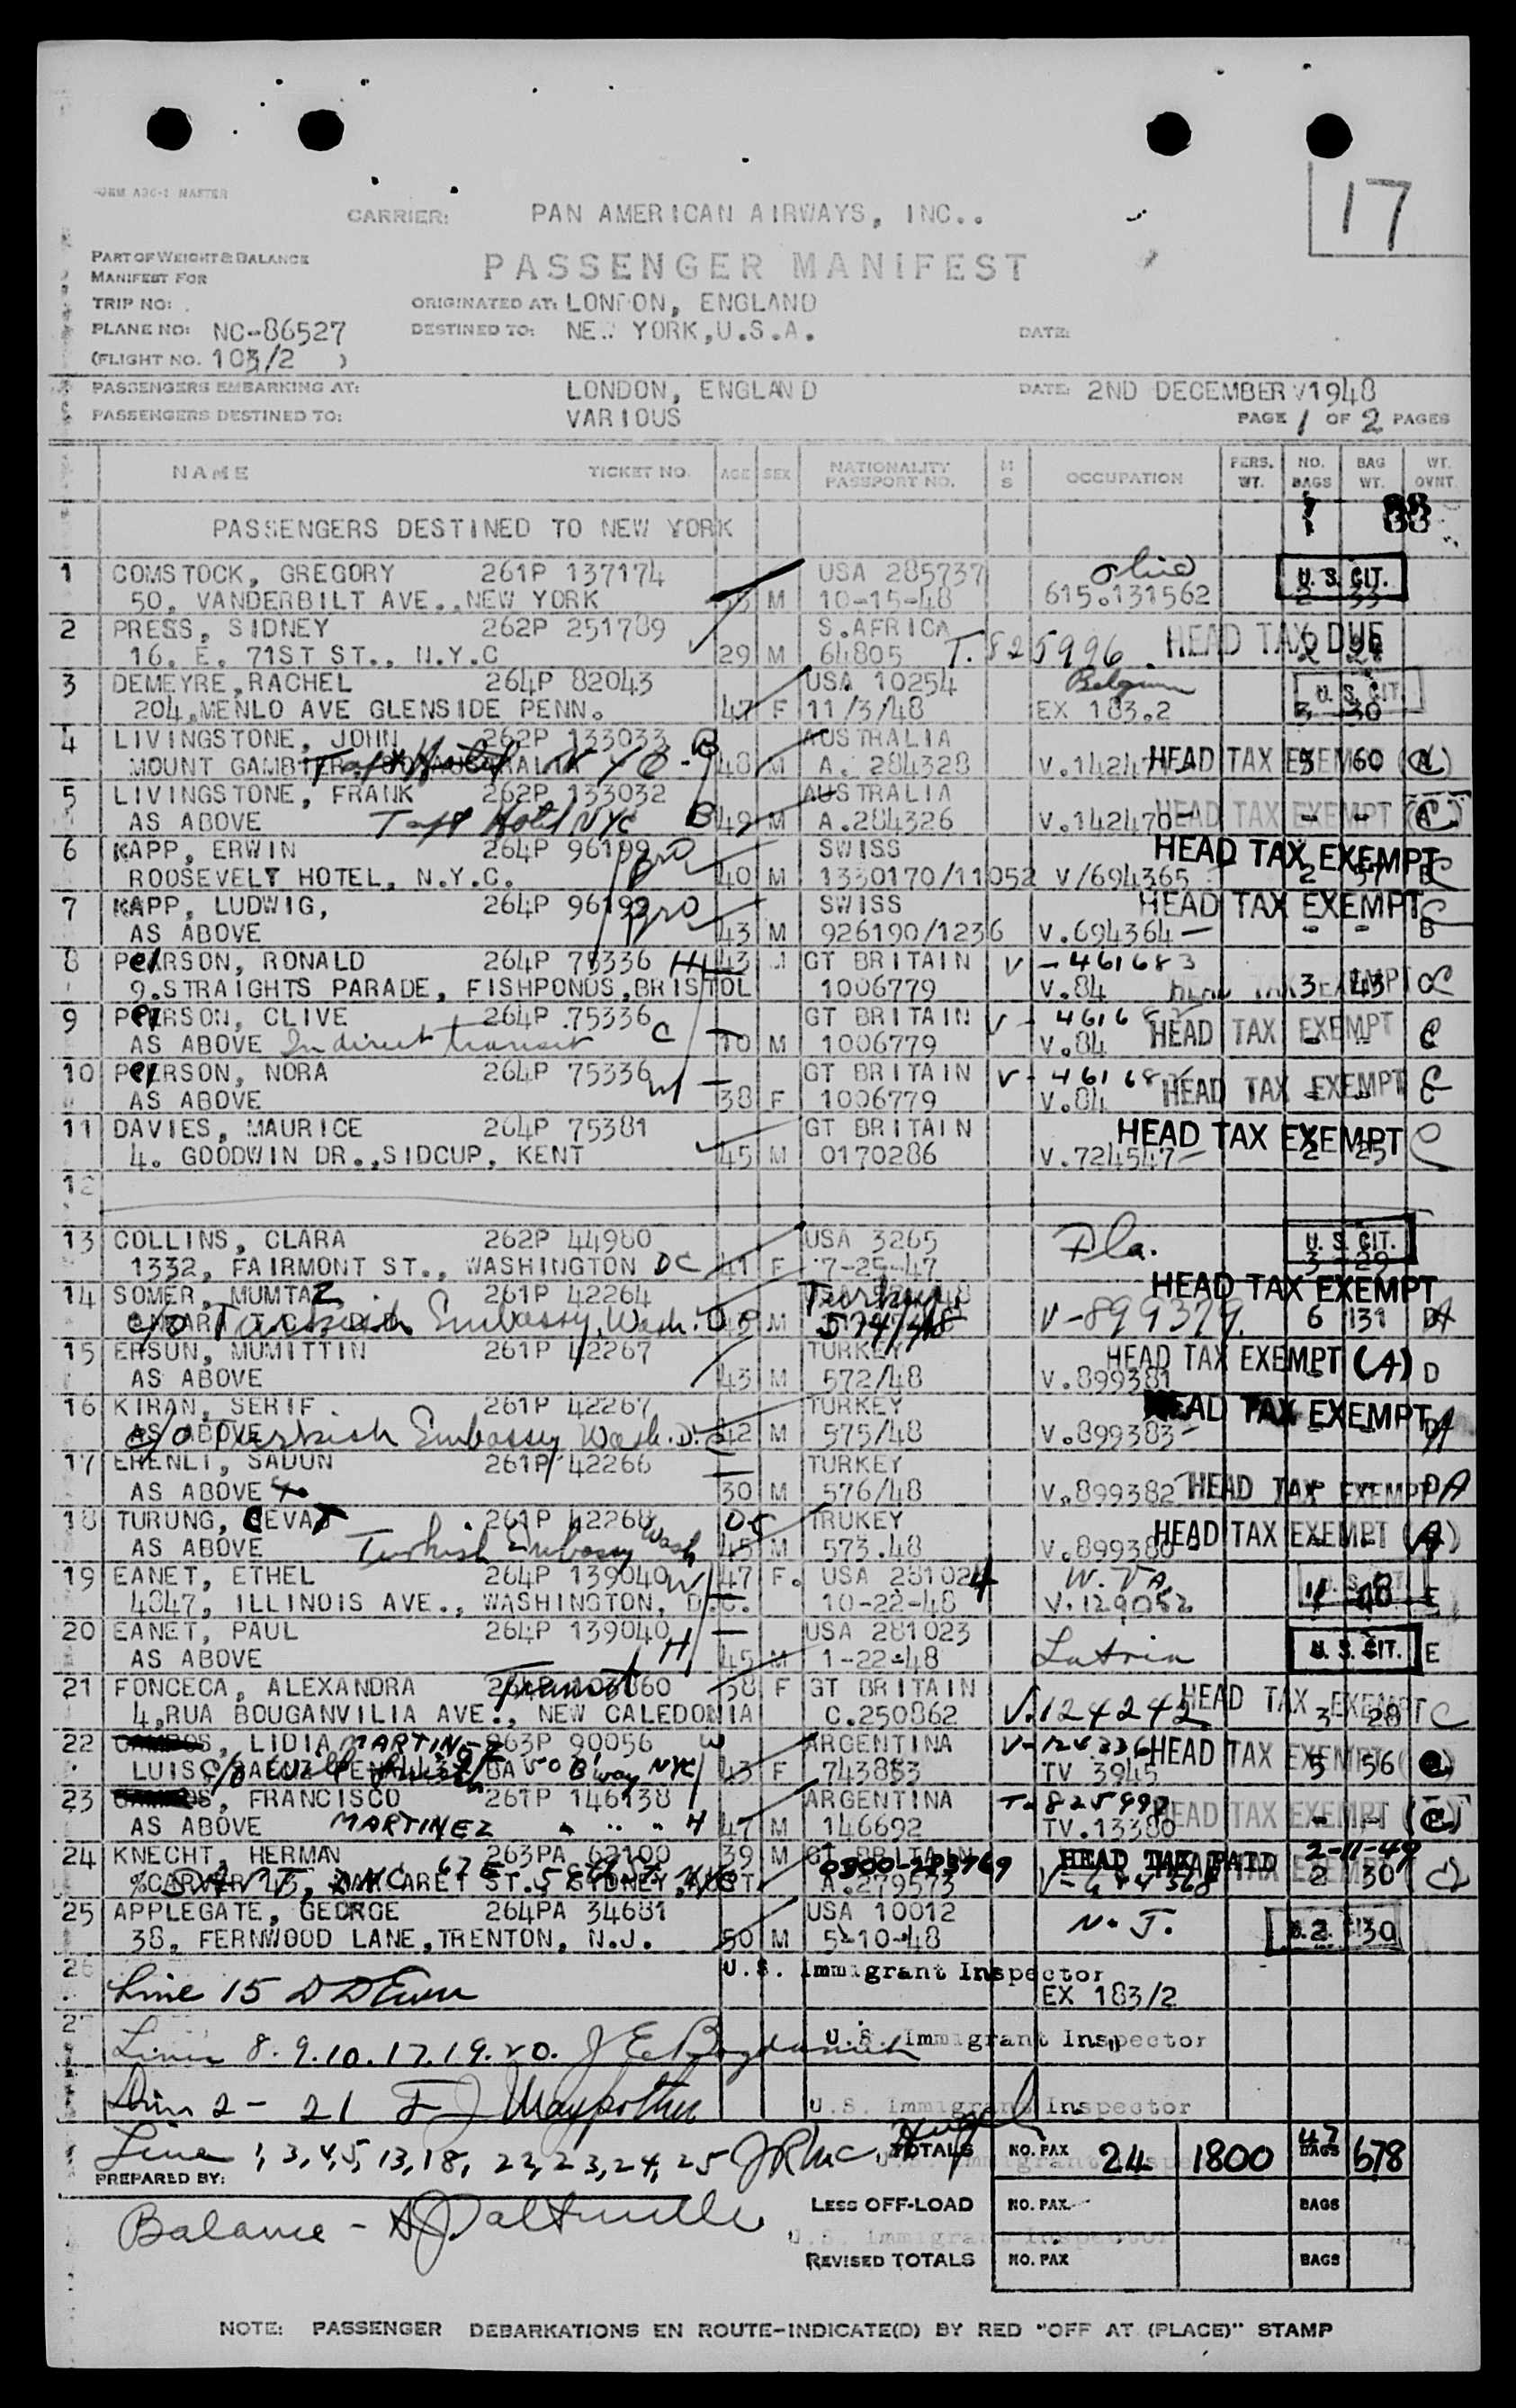 FORM ARC-1 MASTER
17
CARRIER: PAN AMERICAN AIRWAYS, INC..
PART OF WEIGHT & BALANCE
MANIFEST FOR
PASSENGER MANIFEST
TRIP NO: ORIGINATED AT: LONDON, ENGLAND
PLANE NO: NC-86527 DESTINED TO: NEW YORK, U.S.A. DATE:
(FLIGHT NO. 103/2 )
PASSENGERS EMBARKING AT: LONDON, ENGLAND DATE: 2ND DECEMBER 1948
PASSENGERS DESTINED TO: VARIOUS PAGE 1 OF 2 PAGES
NAME TICKET NO. AGE SEX NATIONALITY PASSPORT NO. M S OCCUPATION PERS. WT. NO. BAGS BAG WT. WT. OVNT.
PASSENGERS DESTINED TO NEW YORK
1 COMSTOCK, GREGORY 261P 137174 USA 285737 Ohio U.S. CIT.
50, VANDERBILT AVE., NEW YORK M 10-15-48 615.131562 2 33
2 PRESS, SIDNEY 262P 251789 S.AFRICA HEAD TAX DUE
16. E. 71ST ST., N.Y.C 29 M 64805 T.825996
3 DEMEYRE, RACHEL 264P 82043 USA 10254 Belgium U.S. CIT.
204, MENLO AVE GLENSIDE PENN. 47 F 11/3/48 EX 183.2 3 30
4 LIVINGSTONE, JOHN 262P 133033 B AUSTRALIA
MOUNT GAMBIER Taft Hotel NYC 48 M A. 284328 HEAD TAX EXEMPT 60
5 LIVINGSTONE, FRANK 262P 133032 AUSTRALIA
AS ABOVE Taft Hotel NYC B 49 M A.284326 V.142470 HEAD TAX EXEMPT
6 KAPP, ERWIN 264P 96199 Bro SWISS HEAD TAX EXEMPT
ROOSEVELT HOTEL, N.Y.C. 40 M 1330170/11052 V/694365 2
7 KAPP, LUDWIG, 264P 96199 Bro SWISS HEAD TAX EXEMPT
AS ABOVE 43 M 926190/1236 V.694364 - - B
8 PEARSON, RONALD 264P 75336 H 43 M GT BRITAIN V-461683
9.STRAIGHTS PARADE, FISHPONDS, BRISTOL 1006779 V.84 3 43
9 PEARSON, CLIVE 264P 75336 GT BRITAIN
AS ABOVE In direct transit C 10 M 1006779 V.84 HEAD TAX EXEMPT C
10 PEARSON, NORA 264P 75336 W GT BRITAIN HEAD TAX EXEMPT
AS ABOVE 38 F 1006779 V.84
11 DAVIES, MAURICE 264P 75381 GT BRITAIN HEAD TAX EXEMPT
4. GOODWIN DR., SIDCUP, KENT 45 M 0170286 V.724547 2 25
12
13 COLLINS, CLARA 262P 44980 USA 3265 Fla. U.S. CIT.
1332, FAIRMONT ST., WASHINGTON DC 41 F 7-25-47 3 29
14 SOMER, MUMTAZ 261P 42264 Turkey HEAD TAX EXEMPT
c/o Turkish Embassy, Wash. D.C. M 574/48 V-899379 6 131
15 ERSUN, MUMITTIN 261P 42267 TURKEY HEAD TAX EXEMPT (A)
AS ABOVE 43 M 572/48 V.899381 D
16 KIRAN, SERIF 261P 42267 TURKEY HEAD TAX EXEMPT
AS ABOVE c/o Turkish Embassy Wash. D.C. 42 M 575/48 V.899383
17 ERENLI, SADUN 261P 42266 TURKEY
AS ABOVE 30 M 576/48 V.899382 HEAD TAX EXEMPT A
18 TURUNG, CEVAT 261P 42268 DC TRUKEY HEAD TAX EXEMPT (A)
AS ABOVE Turkish Embassy Wash 45 M 573.48 V.899380
19 EANET, ETHEL 264P 139040 W 47 F. USA 281024 W. VA.
4847, ILLINOIS AVE., WASHINGTON, D.C. 10-22-48 V.129052 E
20 EANET, PAUL 264P 139040 H USA 281023 Latvia U.S. CIT. E
AS ABOVE 45 M 1-22-48
21 FONCECA, ALEXANDRA Transit 38 F GT BRITAIN HEAD TAX EXEMPT
4, RUA BOUGANVILIA AVE., NEW CALEDONIA C.250862 V.124242 3 28 C
22 LIDIA MARTINEZ 263P 90056 W ARGENTINA HEAD TAX EXEMPT
50 B'way NYC 43 F 743883 TV 3945 5 56
23 FRANCISCO 261P 146138 ARGENTINA HEAD TAX EXEMPT
AS ABOVE MARTINEZ H 47 M 146692 TV.13380
24 KNECHT, HERMAN 263PA 62100 39 M GT BRITAIN 0300-283769 HEAD TAX PAID 2-11-49
A.279573 2 30
25 APPLEGATE, GEORGE 264PA 34681 USA 10012 N.J.
38, FERNWOOD LANE, TRENTON, N.J. 50 M 5-10-48 2 30
26 U.S. Immigrant Inspector
Line 15 EX 183/2
Lines 8.9.10.17.19.20. U.S. Immigrant Inspector
Lines 2 - 21 U.S. Immigrant Inspector
Line 1,3,4,5,13,18,22,23,24,25 TOTALS NO. PAX 24 1800 BAGS 47 678
PREPARED BY:
Balance - LESS OFF-LOAD NO. PAX BAGS
U.S. Immigrant Inspector
REVISED TOTALS NO. PAX BAGS
NOTE: PASSENGER DEBARKATIONS EN ROUTE-INDICATE(D) BY RED "OFF AT (PLACE)" STAMP